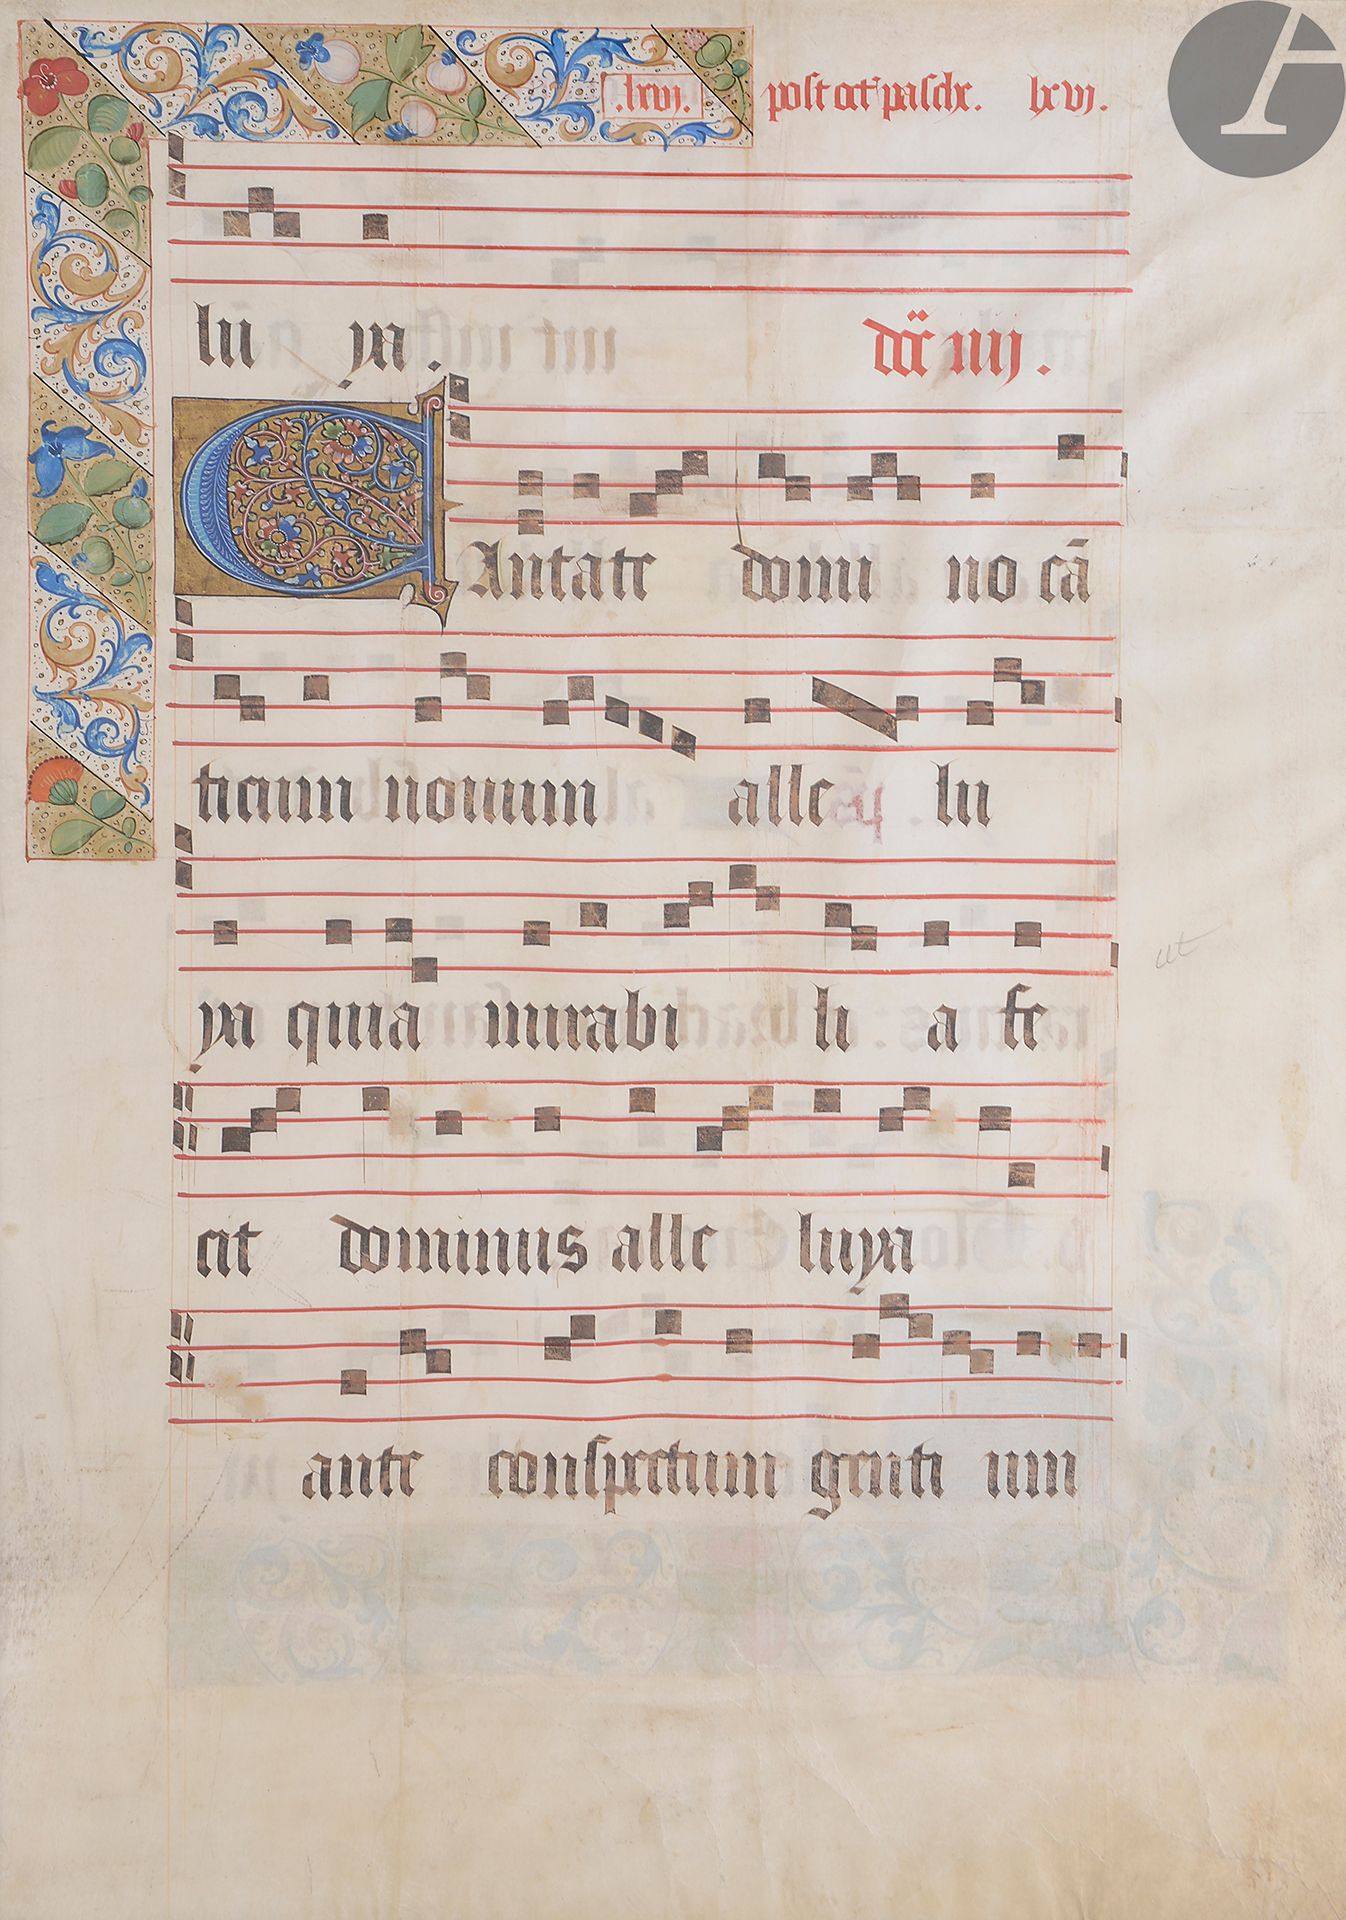 .lxvj. post oct' pasche. lxvj.
lu ya. dn̄ca iiij.
CAntate domi no cā
ticum nouum alle lu
ya quia mirabi li a fe
cit dominus alle luya
ante conspectum genti um
ut